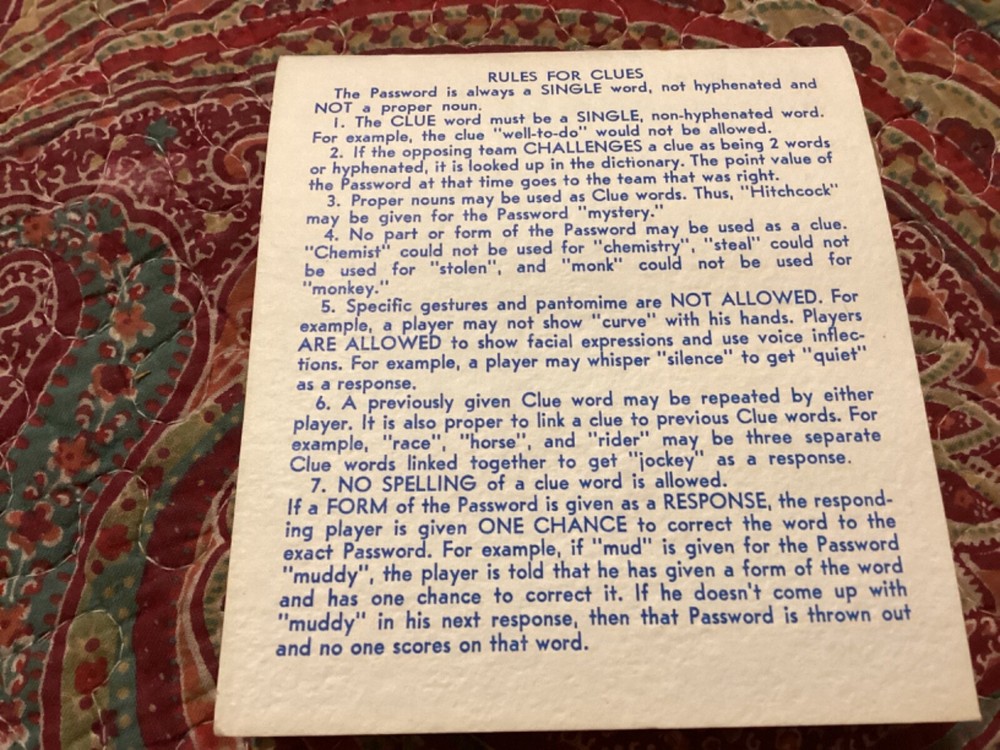 RULES FOR CLUES
The Password is always a SINGLE word, not hyphenated and
NOT a proper noun.
1. The CLUE word must be a SINGLE, non-hyphenated word.
For example, the clue "well-to-do" would not be allowed.
2. If the opposing team CHALLENGES a clue as being 2 words
or hyphenated, it is looked up in the dictionary. The point value of
the Password at that time goes to the team that was right.
3. Proper nouns may be used as Clue words. Thus, "Hitchcock"
may be given for the Password "mystery."
4. No part or form of the Password may be used as a clue.
"Chemist" could not be used for "chemistry", "steal" could not
be used for "stolen", and "monk" could not be used for
"monkey."
5. Specific gestures and pantomime are NOT ALLOWED. For
example, a player may not show "curve" with his hands. Players
ARE ALLOWED to show facial expressions and use voice inflec-
tions. For example, a player may whisper "silence" to get "quiet"
as a response.
6. A previously given Clue word may be repeated by either
player. It is also proper to link a clue to previous Clue words. For
example, "race", "horse", and "rider" may be three separate
Clue words linked together to get "jockey" as a response.
7. NO SPELLING of a clue word is allowed.
If a FORM of the Password is given as a RESPONSE, the respond-
ing player is given ONE CHANCE to correct the word to the
exact Password. For example, if "mud" is given for the Password
"muddy", the player is told that he has given a form of the word
and has one chance to correct it. If he doesn't come up with
"muddy" in his next response, then that Password is thrown out
and no one scores on that word.